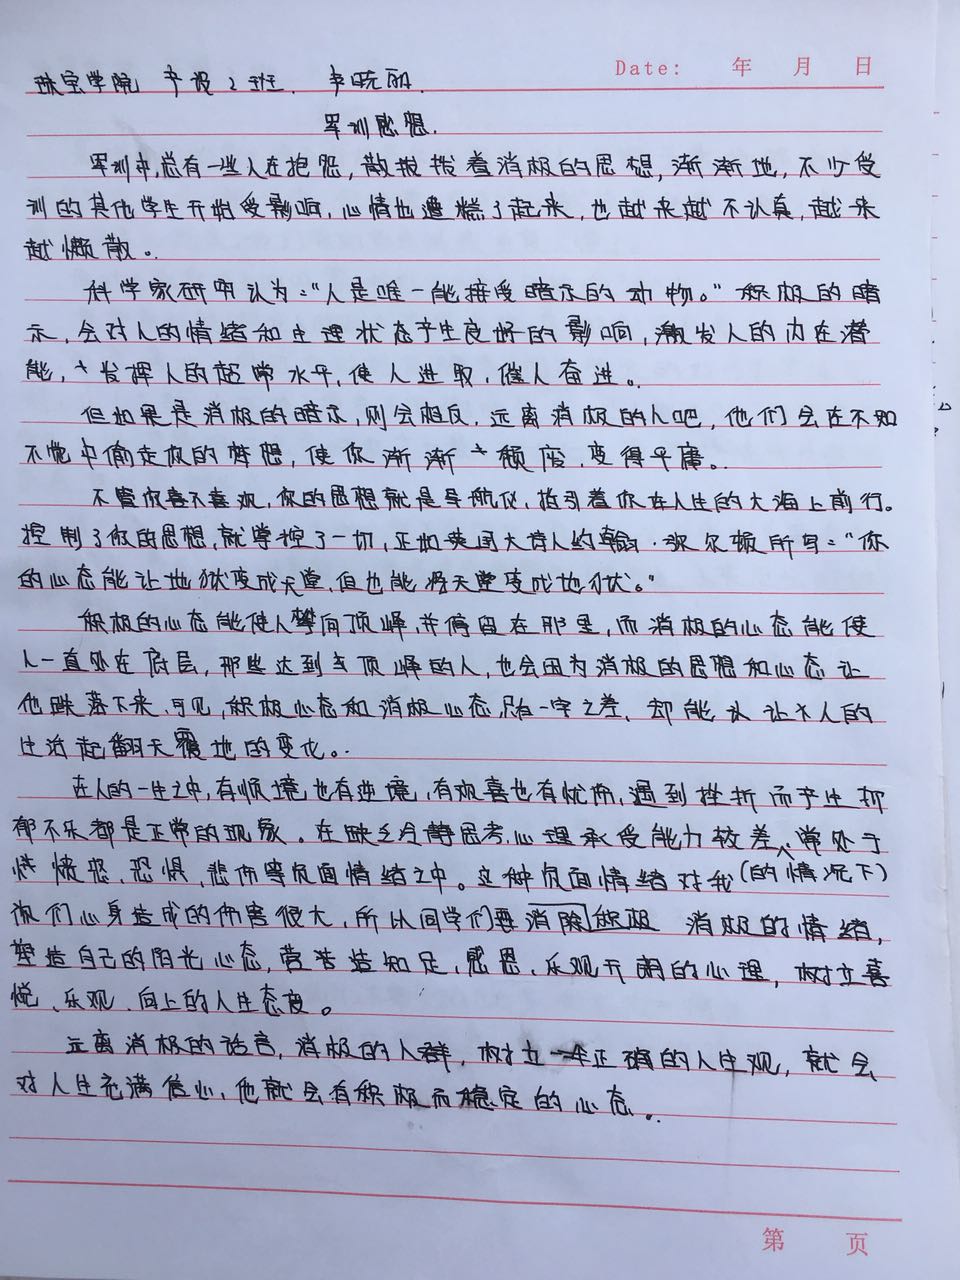 Date: 年 月 日
珠宝学院 产设2班. 韦晓丽.
军训感想.
军训中,总有一些人在抱怨,散拨拨着消极的思想,渐渐地,不少受
训的其他学生开始受影响,心情也遭糕了起来,也越来越不认真,越来
越懒散。
科学家研究认为:“人是唯一能接受暗示的动物。”积极的暗
示,会对人的情绪和生理状态产生良好的影响,激发人的内在潜
能,发挥人的超常水平,使人进取,催人奋进。
但如果是消极的暗示,则会相反,远离消极的人吧,他们会在不知
不觉中偷走你的梦想,使你渐渐颓废,变得平庸。
不管你喜不喜欢,你的思想就是导航仪,指引着你在人生的大海上前行。
控制了你的思想,就掌控了一切,正如英国大诗人约翰·弥尔顿所写:“你
的心态能让地狱变成天堂,但也能将天堂变成地狱。”
积极的心态能使人攀向顶峰,并停留在那里,而消极的心态能使
人一直处在底层,那些达到顶峰的人,也会因为消极的思想和心态让
他跌落下来,可见,积极心态和消极心态,只有一字之差,却能让人的
生活起翻天覆地的变化。
在人的一生之中,有顺境也有逆境,有欢喜也有忧伤,遇到挫折而产生抑
郁不乐都是正常的现象。在缺乏冷静思考,心理承受能力较差,常处于
愤怒,恐惧,悲伤等负面情绪之中。这种负面情绪对我(的情况下)
们心身造成的伤害很大,所以同学们要消除积极 消极的情绪,
塑造自己的阳光心态,营造知足,感恩,乐观开朗的心理,树立喜
悦、乐观、向上的人生态度。
远离消极的话言,消极的人群,树立正确的人生观,就会
对人生充满信心,他就会有积极而稳定的心态。
第 页